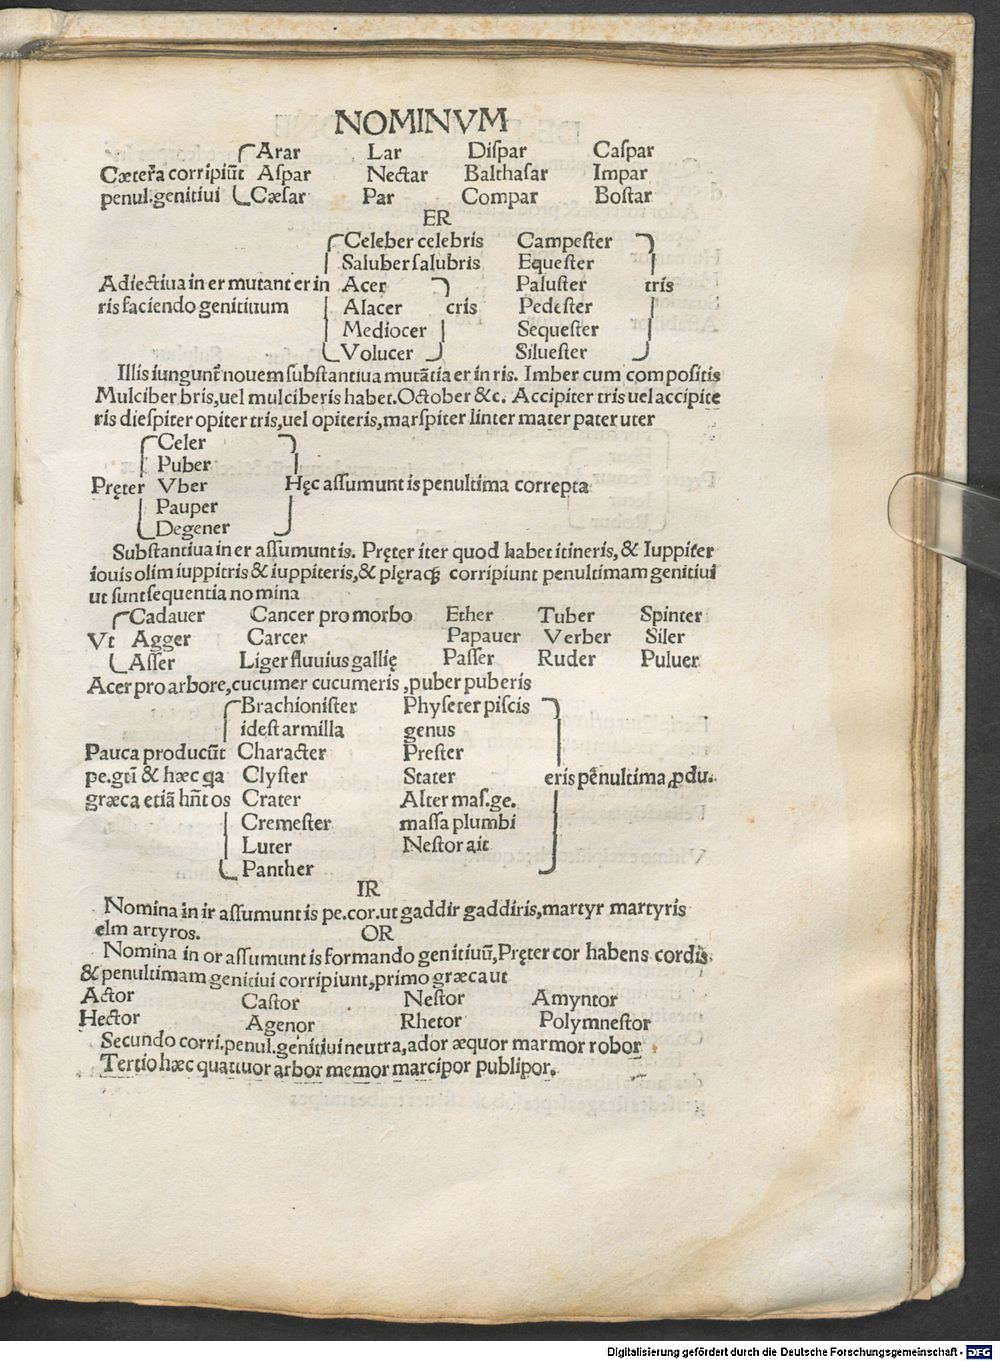 NOMINVM
Arar Lar Diſpar Caſpar
Cæteŕa corripiūt Aſpar Nectar Balthaſar Impar
penul.genitiui Cæſar Par Compar Boſtar
ER
Celeber celebris Campeſter
Saluber ſalubris Equeſter
Adiectiua in er mutant er in Acer Paluſter tris
ris faciendo genitiuum Alacer cris Pedeſter
Mediocer Sequeſter
Volucer Silueſter
Illis iunguntˀ nouem ſubſtantiua mutātia er in ris. Imber cum compoſitis
Mulciber bris,uel mulciberis habet.October &c. Accipiter tris uel accipite
ris dieſpiter opiter tris,uel opiteris,marſpiter linter mater pater uter
Celer
Puber
Pręter Vber Hęc aſſumunt is penultima correpta
Pauper
Degener
Subſtantiua in er aſſumunt is. Pręter iter quod habet itineris, & Iuppiter
iouis olim iuppitris & iuppiteris,& plęraqꝫ corripiunt penultimam genitiui
ut ſunt ſequentia nomina
Cadauer Cancer pro morbo Ether Tuber Spinter
Vt Agger Carcer Papauer Verber Siler
Aſſer Liger fluuius gallię Paſſer Ruder Puluer
Acer pro arbore,cucumer cucumeris ,puber puberis
Brachioniſter Phyſeter piſcis
ideſt armilla genus
Pauca producūt Character Preſter
pe.gtī & hæc qa Clyſter Stater eris pēnultima ꝓdu.
græca etiā hn̄t os Crater Alter maſ.ge.
Cremeſter maſſa plumbi
Luter Neſtor ait
Panther
IR
Nomina in ir aſſumunt is pe.cor.ut gaddir gaddiris,martyr martyris
elm artyros.
OR
Nomina in or aſſumunt is formando genitiuū,Pręter cor habens cordis
& penultimam genitiui corripiunt,primo græca ut
Actor Caſtor Neſtor Amyntor
Hector Agenor Rhetor Polymneſtor
Secundo corri.penul.genitiui neutra,ador æquor marmor robor
Tertio hæc quattuor arbor memor marcipor publipor.
Digitalisierung gefördert durch die Deutsche Forschungsgemeinschaft - DFG